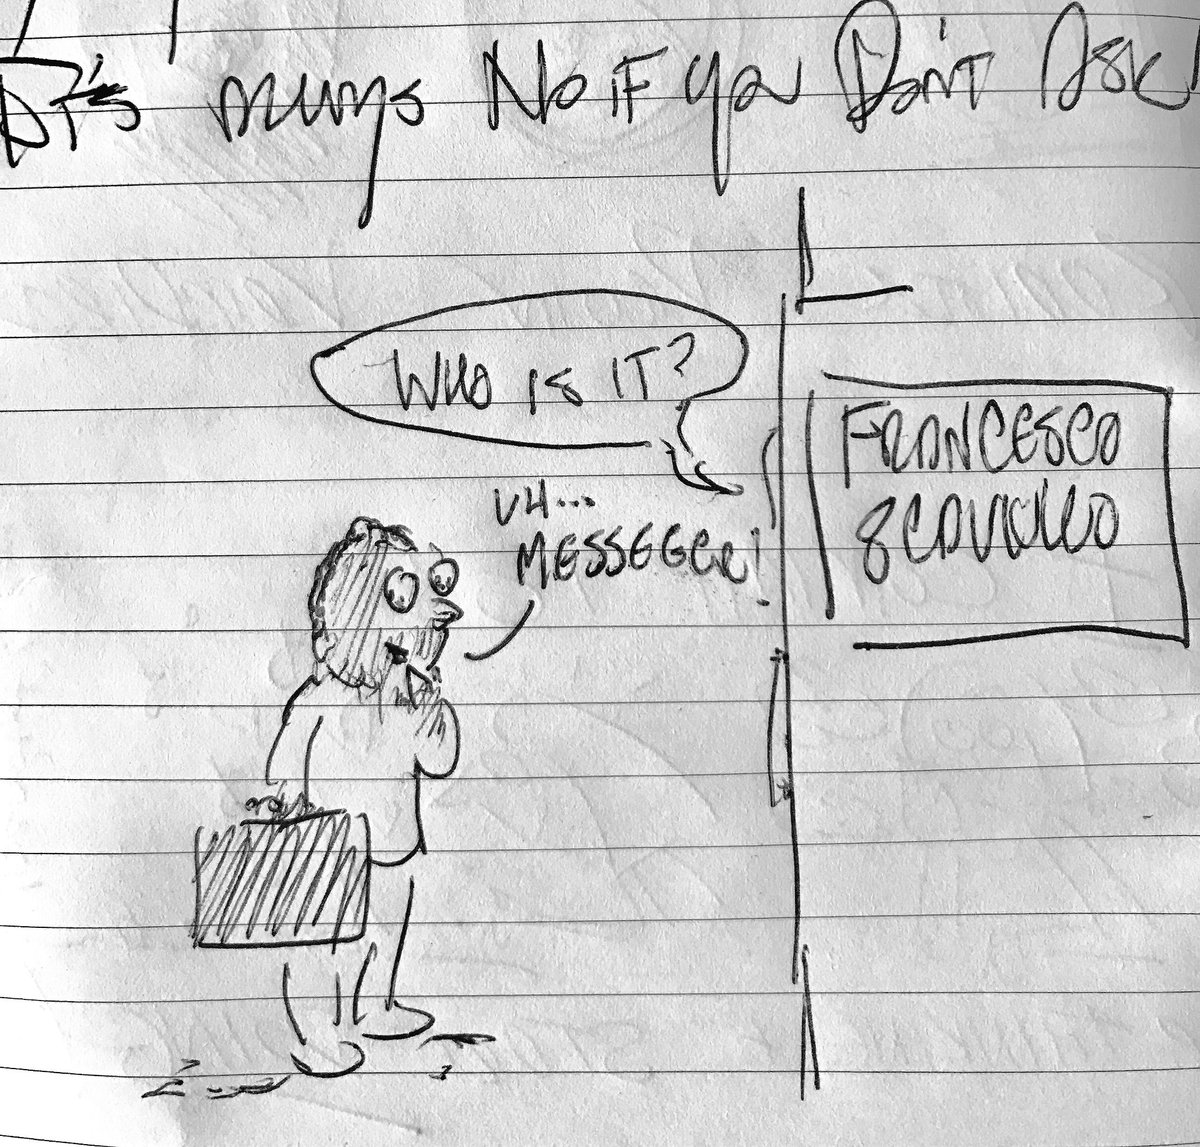 It's Always No if You Don't Ask!
WHO IS IT?
UH...
MESSEGER!
FRANCESCO
SCAVULLO